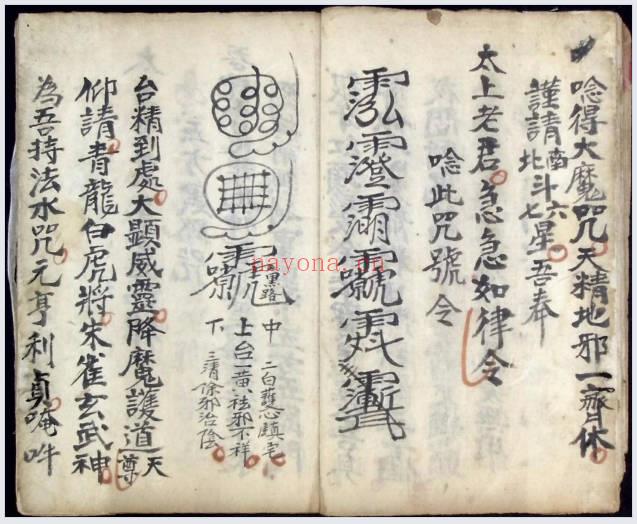 唸得大魔咒天精地邪一齊休
謹請南斗六
北斗七星吾奉
太上老君急急如律令
唸此咒號令
黑路
中 二白護鎮宅
上台一黄祛邪不祥
下 三清除邪治陰
台精到處大顯威靈降魔護道天尊
仰請青龍白虎將朱雀玄武神
為吾持法水咒元亨利貞唵吽
nayona.cn